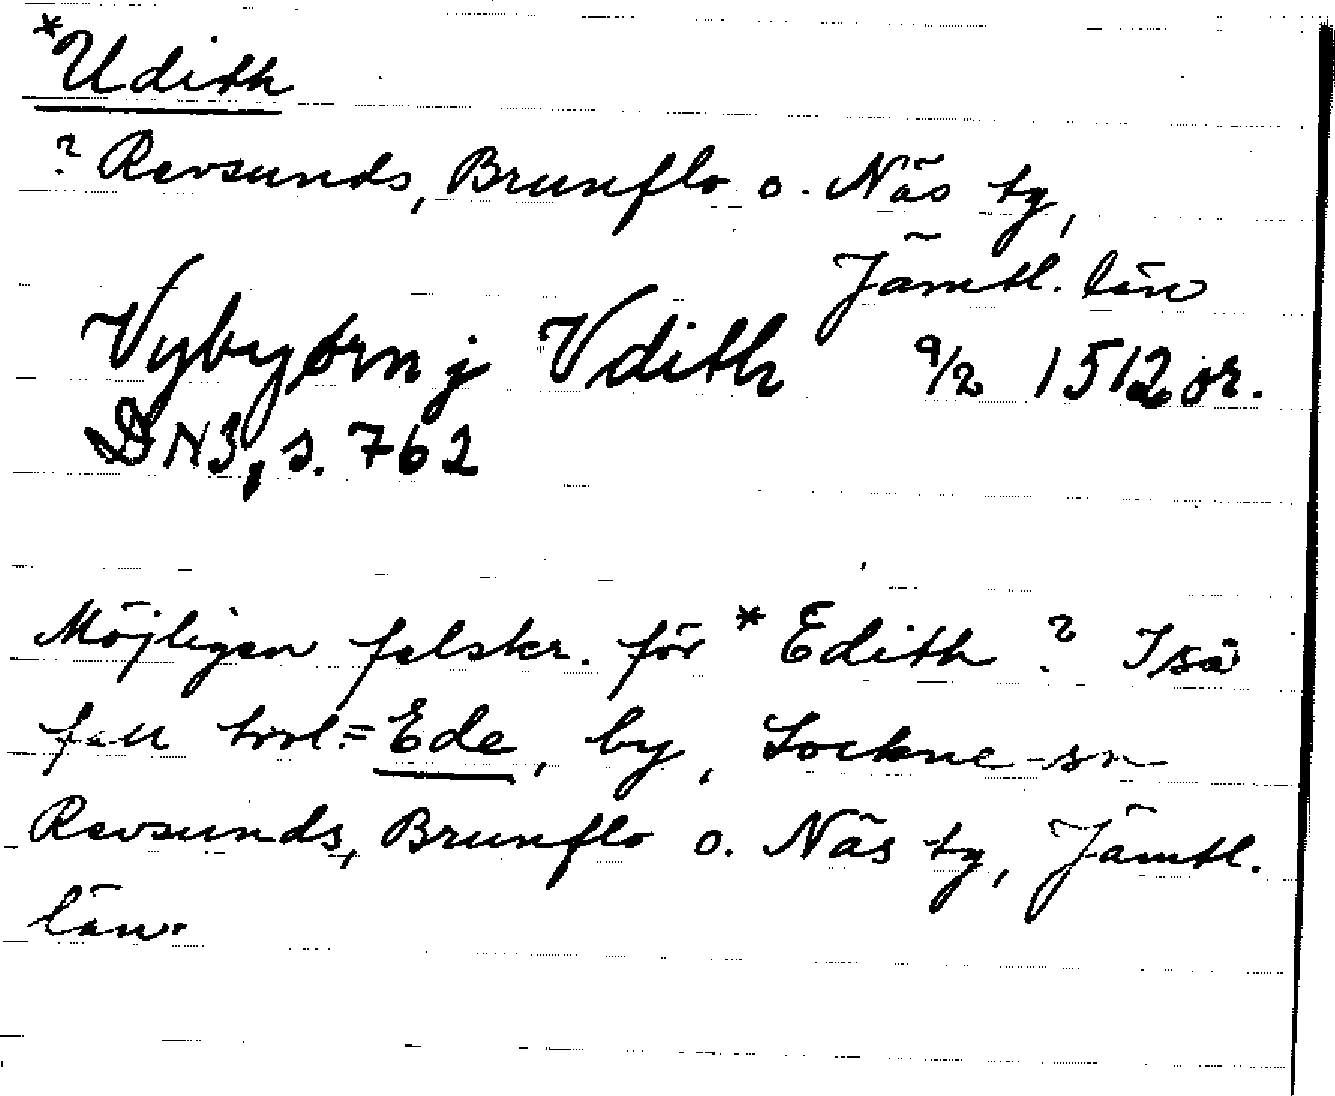 *Udith
? Revsunds, Brunflo o. Näs tg,
Jämtl. län
Vybyørn j Vdith 9/2 1512 or.
DN3, s. 762
Möjligen felskr. för *Edith? I så
fall trol.= Ede, by, Lockne sn
Revsunds, Brunflo o. Näs tg, Jämtl.
län.